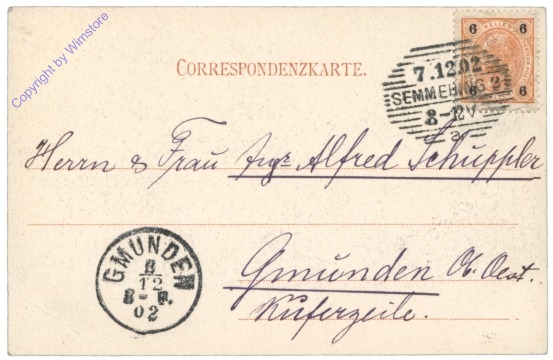 Copyright by Wimstore
CORRESPONDENZKARTE.
HELLER
6 6
6 6
7.12.02
SEMMERING 2
8-12V
a
Herrn & Frau Alfred Schuppler
GMUNDEN
8
12
8-
02
Gmunden Ob. Oest.
Kuferzeile.